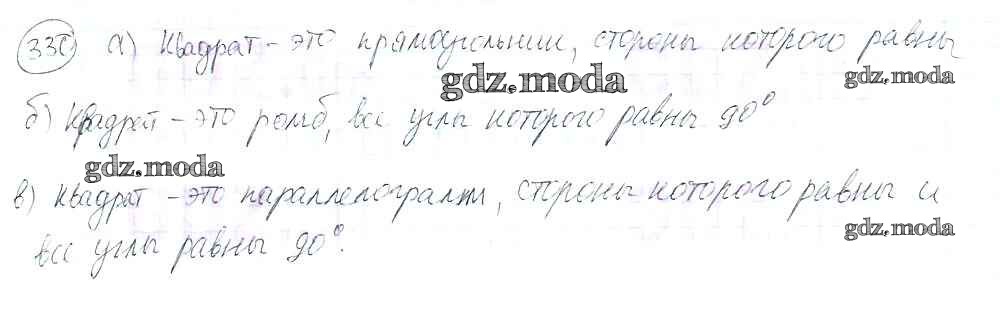 330 а) Квадрат - это прямоугольник, стороны которого равны
gdz.moda
gdz.moda
б) Квадрат - это ромб, все углы которого равны 90°
gdz.moda
в) Квадрат - это параллелограмм, стороны которого равны и
gdz.moda
все углы равны 90°.